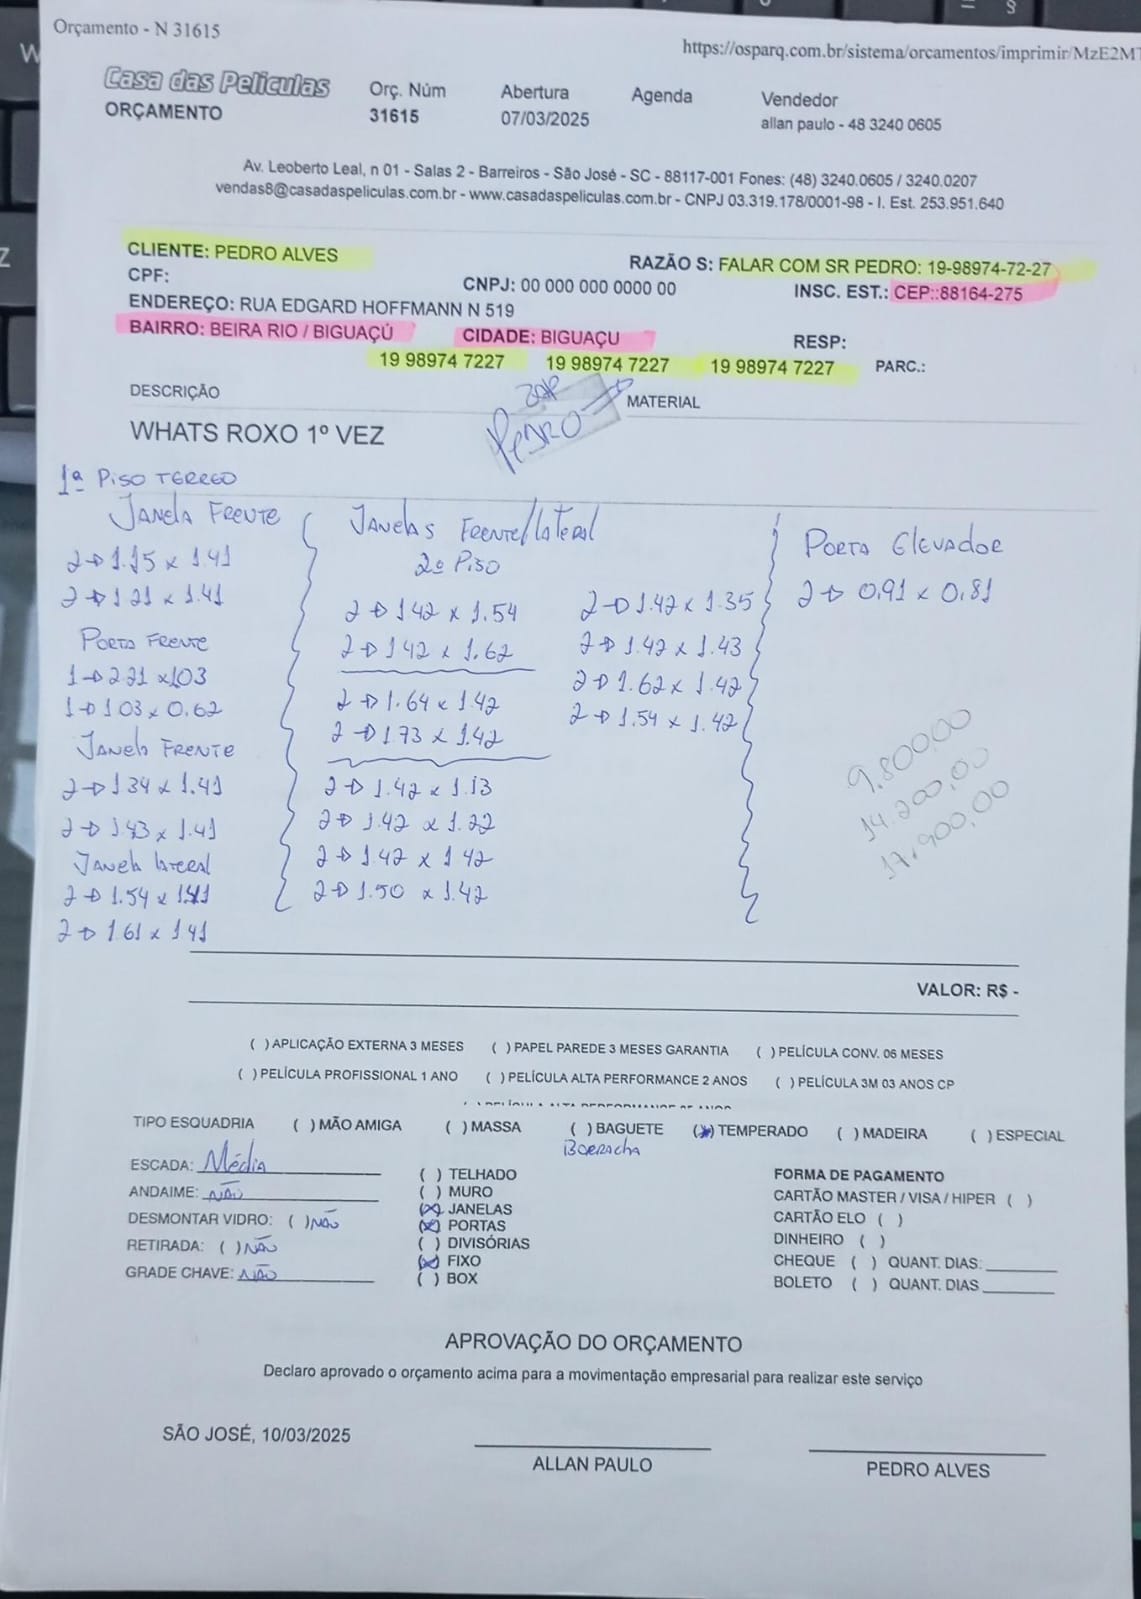 Orçamento - N 31615
https://osparq.com.br/sistema/orcamentos/imprimir/MzE2MT
Casa das Películas
ORÇAMENTO
Orç. Núm
31615
Abertura
07/03/2025
Agenda
Vendedor
allan paulo - 48 3240 0605
Av. Leoberto Leal, n 01 - Salas 2 - Barreiros - São José - SC - 88117-001 Fones: (48) 3240.0605 / 3240.0207
vendas8@casadaspeliculas.com.br - www.casadaspeliculas.com.br - CNPJ 03.319.178/0001-98 - I. Est. 253.951.640
CLIENTE: PEDRO ALVES
RAZÃO S: FALAR COM SR PEDRO: 19-98974-72-27
CPF:
CNPJ: 00 000 000 0000 00
INSC. EST.: CEP::88164-275
ENDEREÇO: RUA EDGARD HOFFMANN N 519
BAIRRO: BEIRA RIO / BIGUAÇÚ
CIDADE: BIGUAÇU
RESP:
19 98974 7227 19 98974 7227 19 98974 7227 PARC.:
DESCRIÇÃO
MATERIAL
ZAP
PEDRO
WHATS ROXO 1º VEZ
1ª PISO TERREO
JANELA FRENTE
2 → 1.15 x 1.41
2 → 1.21 x 1.41
PORTA FRENTE
1 → 2.21 x 1.03
1 → 1.03 x 0.62
JANELA FRENTE
2 → 1.34 x 1.41
2 → 1.43 x 1.41
JANELA LATERAL
2 → 1.54 x 1.41
2 → 1.61 x 1.41
JANELAS FRENTE/LATERAL
2º PISO
2 → 1.42 x 1.54
2 → 1.42 x 1.62
2 → 1.64 x 1.42
2 → 1.73 x 1.42
2 → 1.42 x 1.13
2 → 1.42 x 1.22
2 → 1.42 x 1.42
2 → 1.50 x 1.42
2 → 1.42 x 1.35
2 → 1.42 x 1.43
2 → 1.62 x 1.42
2 → 1.54 x 1.42
PORTA ELEVADOR
2 → 0.91 x 0.81
9.800,00
14.200,00
17.900,00
VALOR: R$ -
( ) APLICAÇÃO EXTERNA 3 MESES ( ) PAPEL PAREDE 3 MESES GARANTIA ( ) PELÍCULA CONV. 06 MESES
( ) PELÍCULA PROFISSIONAL 1 ANO ( ) PELÍCULA ALTA PERFORMANCE 2 ANOS ( ) PELÍCULA 3M 03 ANOS CP
TIPO ESQUADRIA ( ) MÃO AMIGA ( ) MASSA ( ) BAGUETE (x) TEMPERADO ( ) MADEIRA ( ) ESPECIAL
BORRACHA
ESCADA: Média
ANDAIME: NÃO
DESMONTAR VIDRO: ( ) NÃO
RETIRADA: ( ) NÃO
GRADE CHAVE: NÃO
( ) TELHADO
( ) MURO
(x) JANELAS
(x) PORTAS
( ) DIVISÓRIAS
(x) FIXO
( ) BOX
FORMA DE PAGAMENTO
CARTÃO MASTER / VISA / HIPER ( )
CARTÃO ELO ( )
DINHEIRO ( )
CHEQUE ( ) QUANT. DIAS:
BOLETO ( ) QUANT. DIAS
APROVAÇÃO DO ORÇAMENTO
Declaro aprovado o orçamento acima para a movimentação empresarial para realizar este serviço
SÃO JOSÉ, 10/03/2025
ALLAN PAULO
PEDRO ALVES